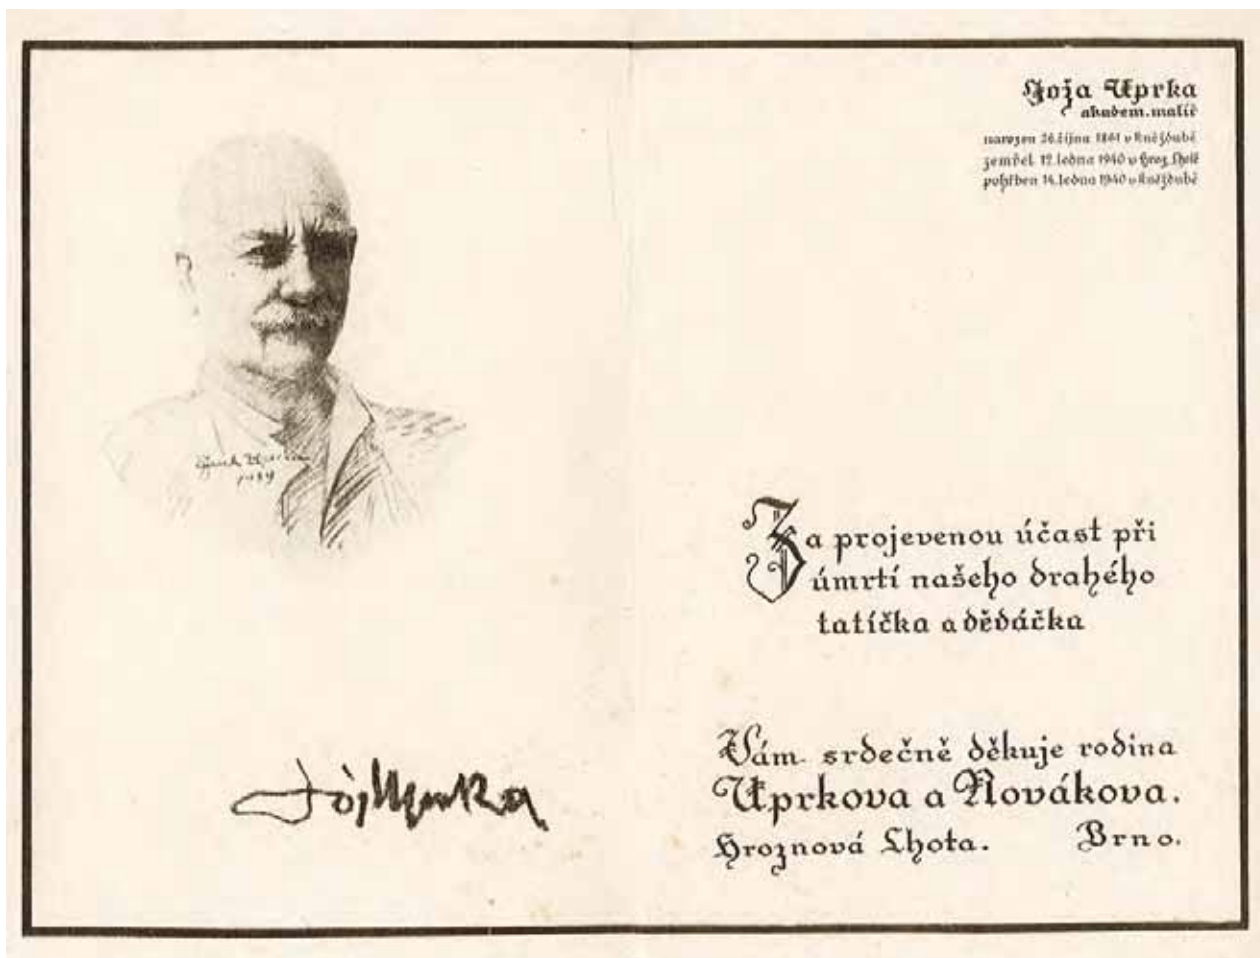 Joža Uprka
akadem. malíř
narozen 26. října 1861 v Kněždubě
zemřel 12. ledna 1940 v Hroz. Lhotě
pohřben 14. ledna 1940 v Kněždubě
Za projevenou účast při
úmrtí našeho drahého
tatíčka a dědáčka
Vám srdečně děkuje rodina
Uprkova a Novákova.
Hroznová Lhota. Brno.